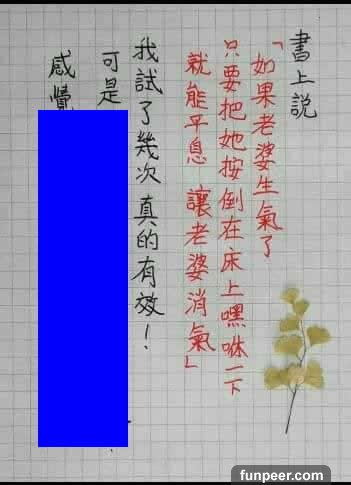 書上說
「如果老婆生氣了
只要把她按倒在床上嘿咻一下
就能平息 讓老婆消氣」
我試了幾次 真的有效！
可是
感覺
funpeer.com